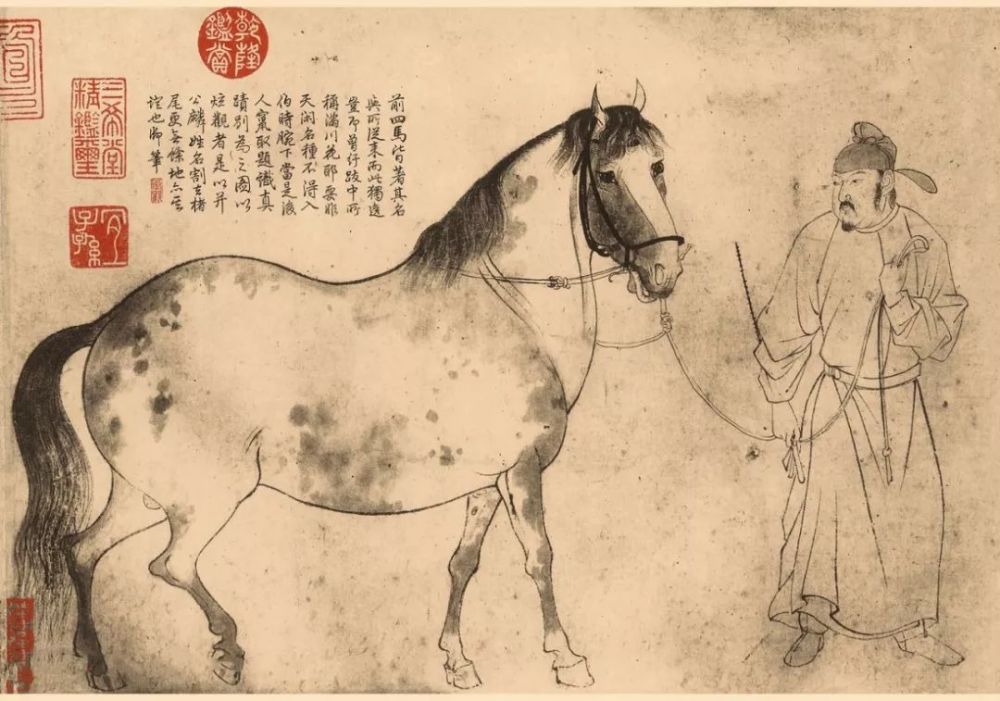 乾隆鑑賞
前四馬皆著其名
與所從來而此獨逸
豈即曾紆跋中所
稱滿川花耶要非
天閑名種不得入
伯時腕下當是後
人竄取題識真
蹟別為之圖以
炫觀者是以并
公麟姓名割去楮
尾更無餘地亦
證也御筆
三希堂精鑑璽
宜子孫